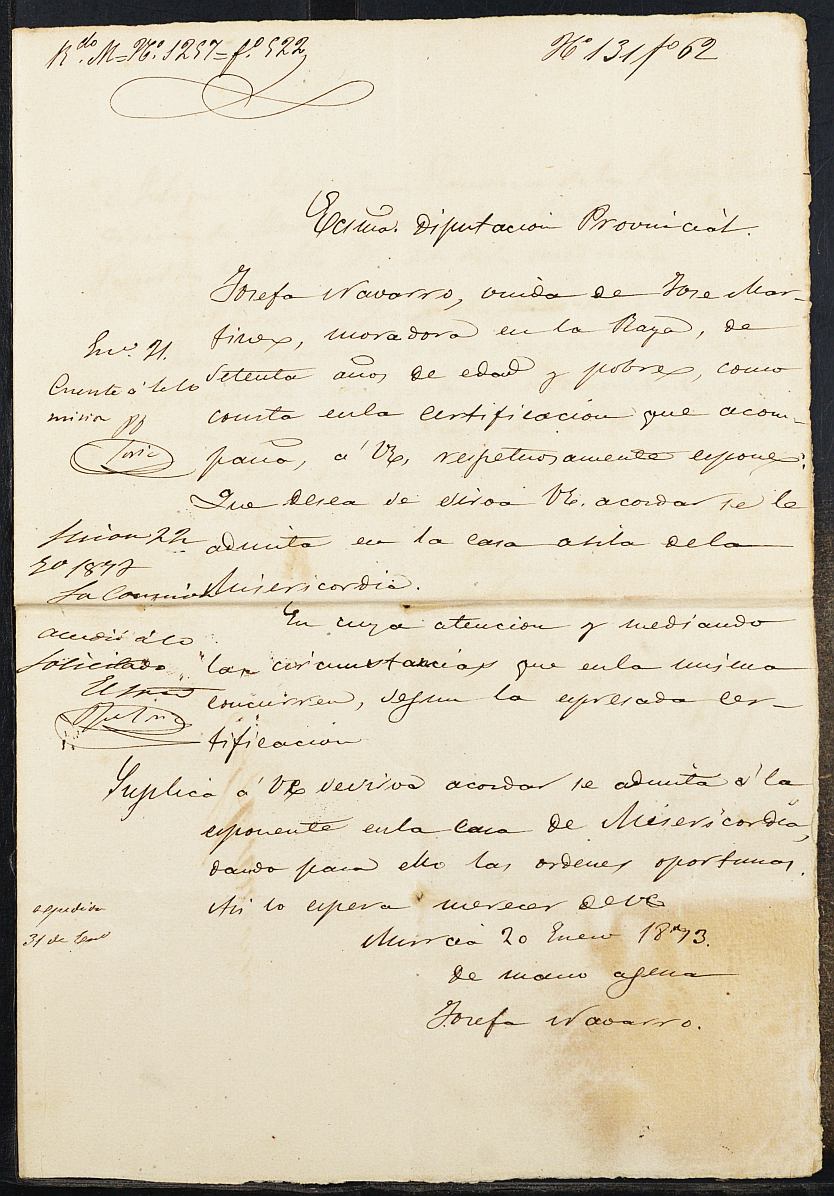 Rdo. M=No. 1257=fo. 522
No 131 fo 62
Ecsma. Diputacion Provincial.
Josefa Navarro, viuda de Jose Mar-
tinez, moradora en la Raya, de
setenta años de edad y pobre, como
consta enla certificacion que acom-
paña, á VE, respetuosamente espone:
Que desea se sirva VE. acordar se le
admita en la casa asilo dela
Misericordia.
En cuya atencion y mediando
las circunstancias que enla misma
concurren, segun la espresada cer-
tificacion
Suplica á VE se sirva acordar se admita á la
esponente enla Casa de Misericordia,
dando para ello las ordenes oportunas.
Asi lo espera merecer de VE
Murcia 20 Enero 1873.
de mano agena
Josefa Navarro.
Eno. 21.
Cuente á la Co
mision
Sesion 22
Eo 1873
La Comision
accedió á lo
solicitado
espedida
31 de Eno